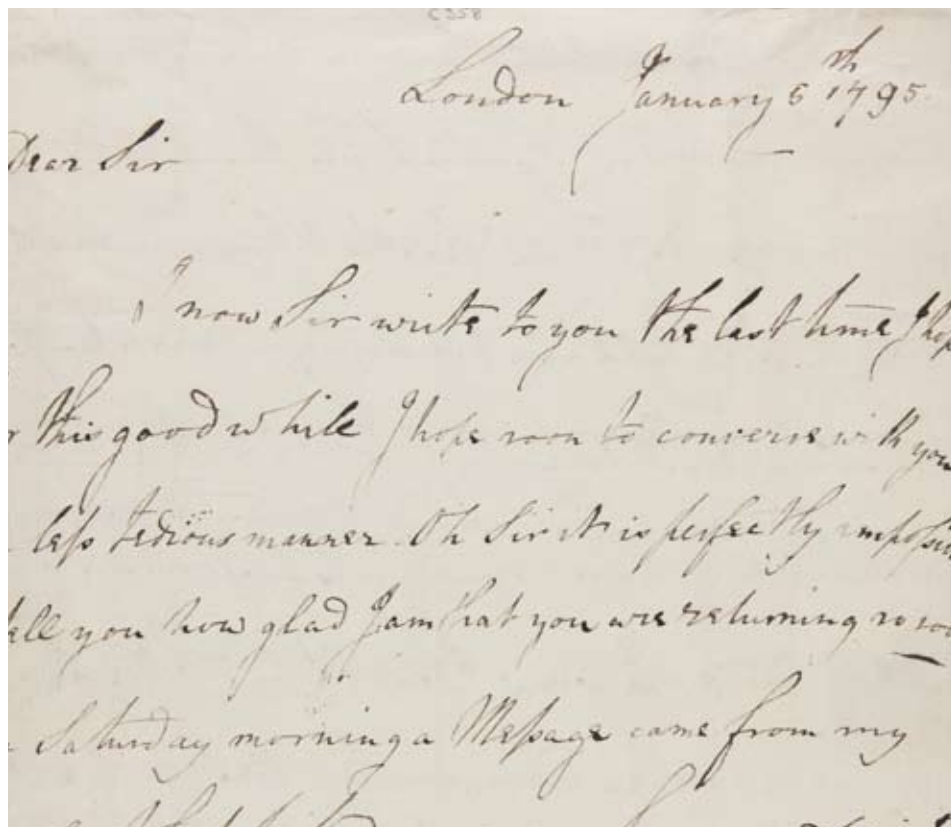 C358
London January 5th 1795.
Dear Sir
I now Sir write to you the last time I hop
this good while I hope soon to converse with you
less tedious manner. Oh Sir it is perfectly impossi
tell you how glad I am that you are returning so soo
Saturday morning a Message came from my